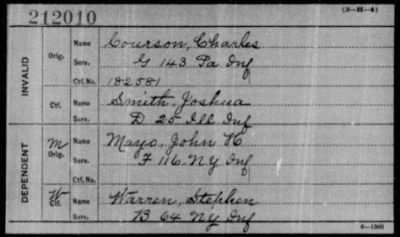 212010
(3-H-4)
INVALID
Orig. Name Courson, Charles
Serv. G 143 Pa Inf
Ctf. No. 182581
Ctf. Name Smith, Joshua
Serv. D 25 Ill Inf
DEPENDENT
M Orig. Name Mayo, John H
Serv. F 116 NY Inf
Ctf. No.
W Ctf. Name Warren, Stephen
Serv. B 64 NY Inf